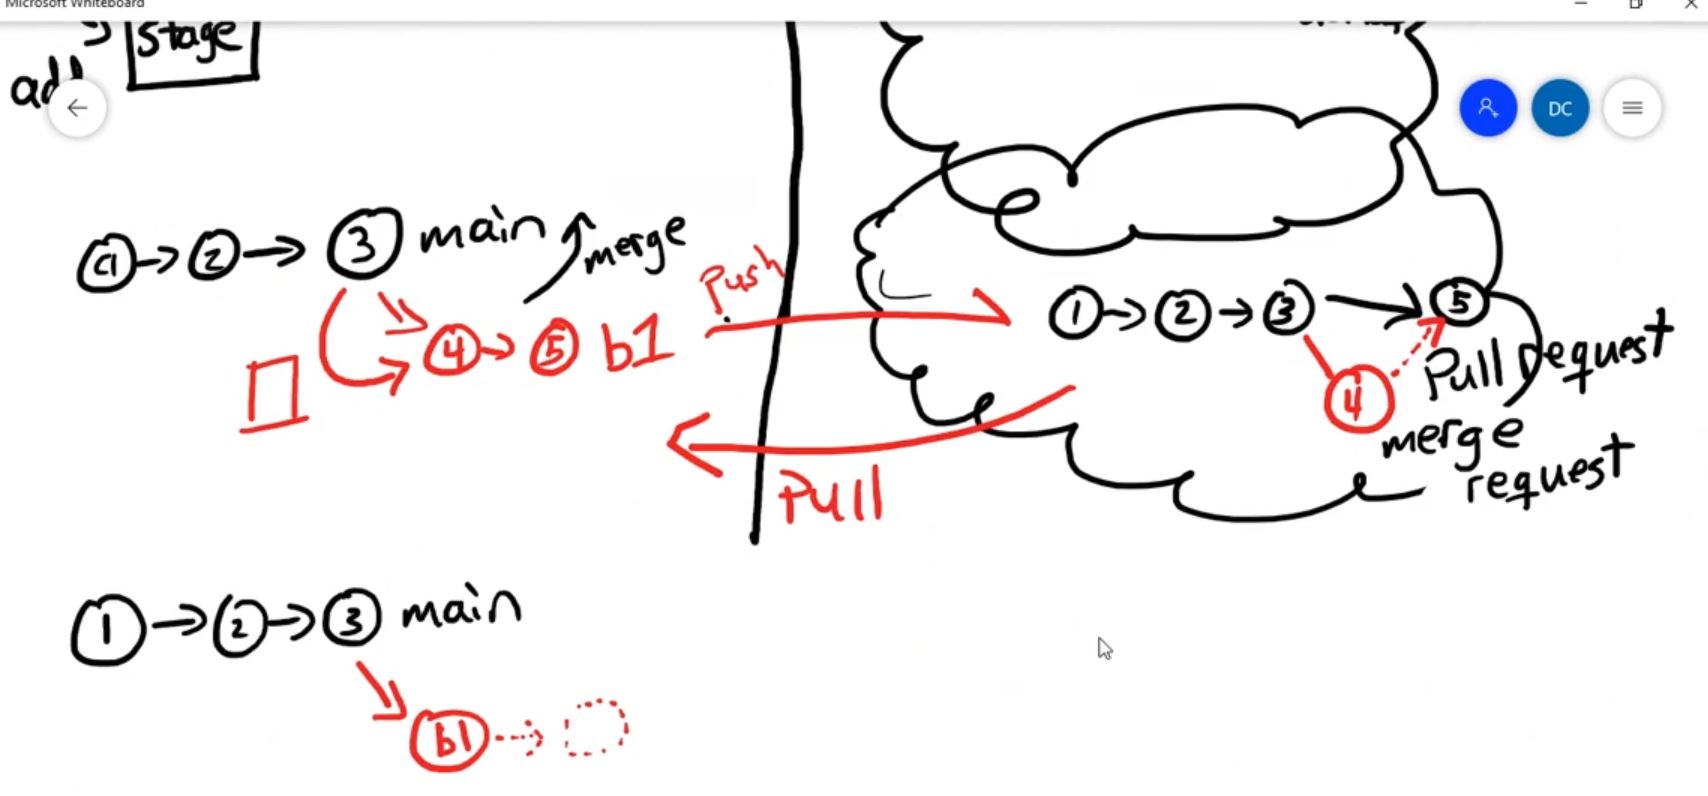 Microsoft Whiteboard
stage
add
DC
C1 2 3 main
merge
Push
4 5 b1
1 2 3 5
Pull request
4
merge
request
Pull
1 2 3 main
b1